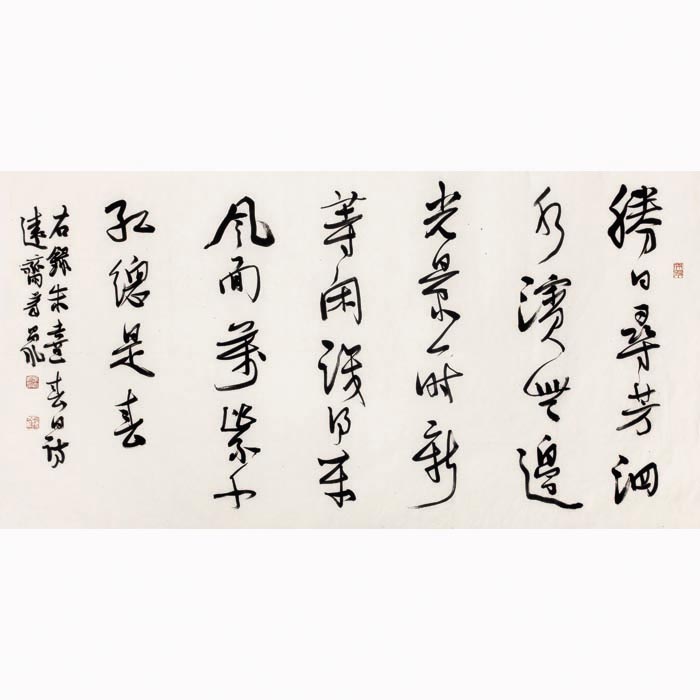 勝日尋芳泗
水濱無邊
光景一時新
等閑識得東
風面萬紫千
紅總是春
右錄朱熹春日詩
遠齋書